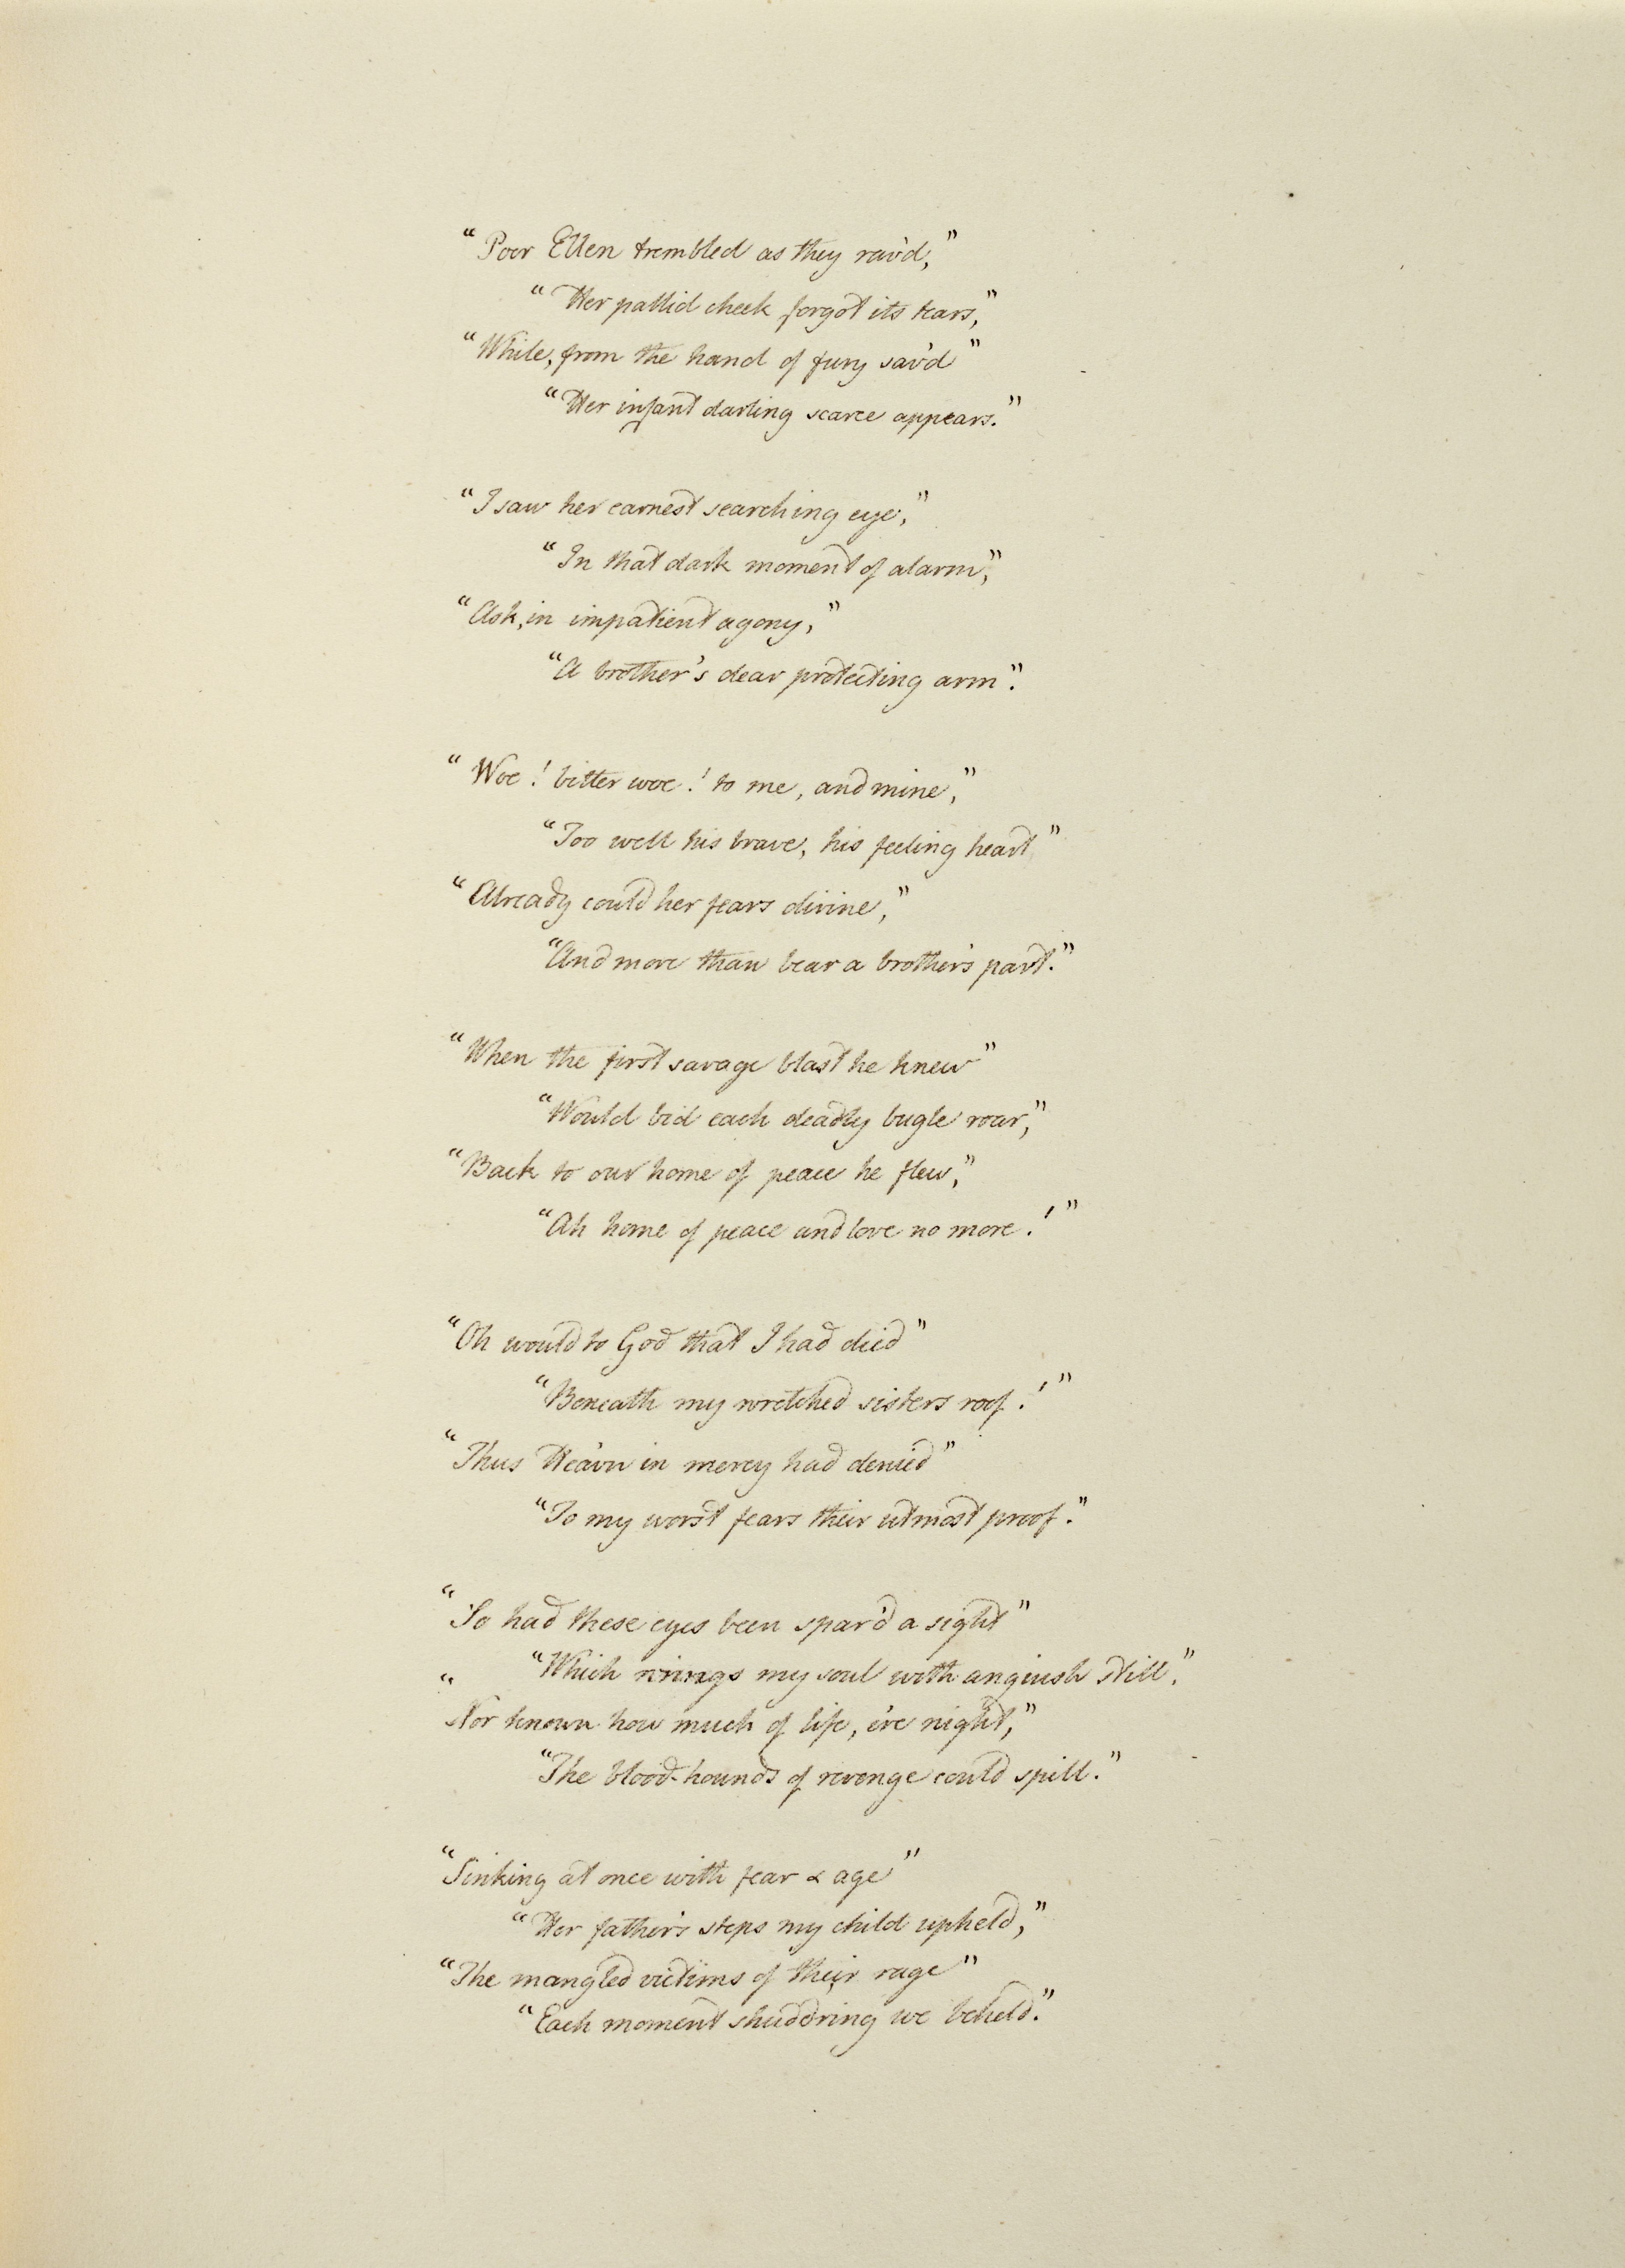 “Poor Ellen trembled as they rav'd,”
“Her pallid cheek forgot its tears,”
“While, from the hand of fury sav'd”
“Her infant darling scarce appears.”
“I saw her earnest searching eye,”
“In that dark moment of alarm,”
“Ask, in impatient agony,”
“A brother's dear protecting arm.”
“Woe! bitter woe! to me, and mine,”
“Too well his brave, his feeling heart”
“Already could her fears divine,”
“And more than bear a brother's part.”
“When the first savage blast he knew”
“Would bid each deadly bugle roar,”
“Back to our home of peace he flew,”
“Ah home of peace and love no more!”
“Oh would to God that I had died”
“Beneath my wretched sisters roof!”
“Thus Heav'n in mercy had denied”
“To my worst fears their utmost proof.”
“So had these eyes been spar'd a sight”
“Which wrings my soul with anguish still.”
“Nor known how much of life, e're night,”
“The blood-hounds of revenge could spill.”
“Sinking at once with fear & age”
“Her father's steps my child upheld,”
“The mangled victims of their rage”
“Each moment shudd'ring we beheld.”